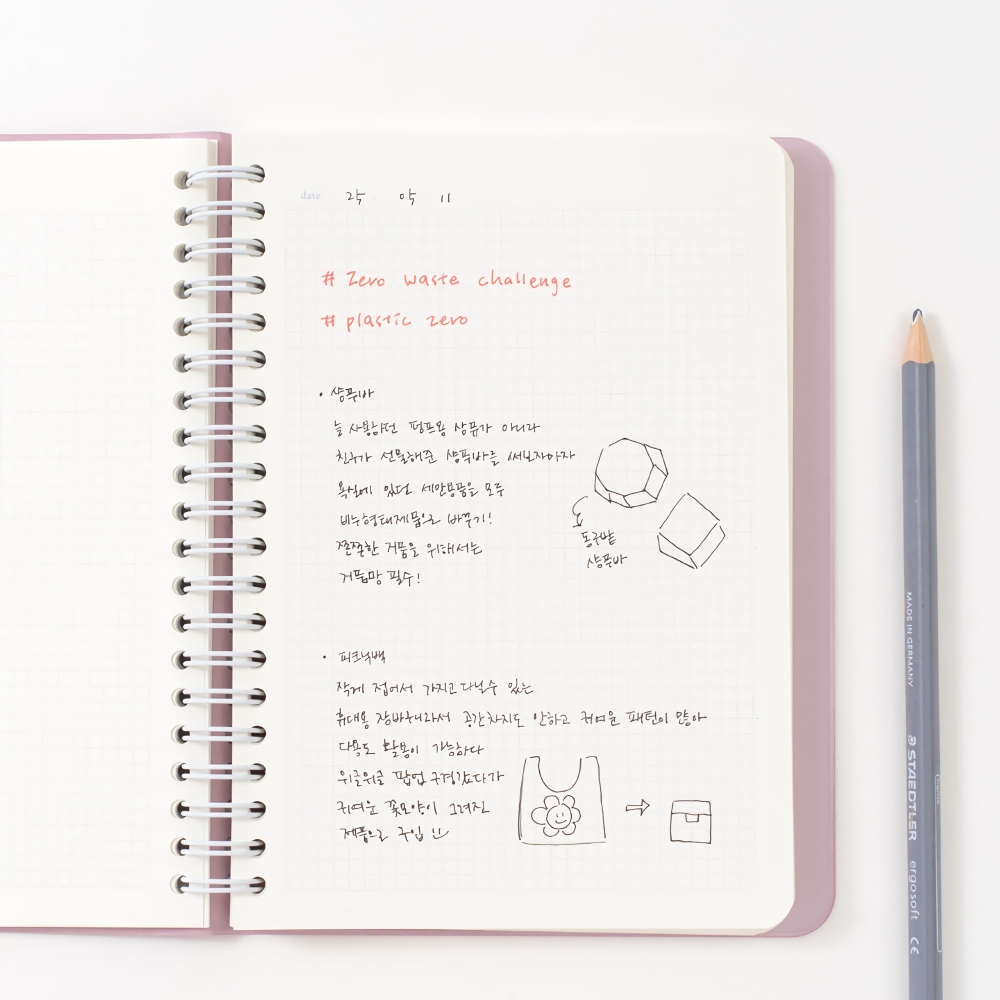 date
# Zero waste challenge
# plastic zero
• 샴푸바
늘 사용하던 펌프용 샴퓨가 아니라
친구가 선물해준 샴푸바를 써보자아자
욕실에 있던 세안용품을 모두
비누형태제품으로 바꾸기!
쫀쫀한 거품을 위해서는
거품망 필수!
동구밭
샴푸바
• 피크닉백
작게 접어서 가지고다닐수 있는
휴대용 장바구니라서 공간차지도 안하고 귀여운 패턴이 많아
다용도 활용이 가능하다
위글위글 팝업 구경갔다가
귀여운 꽃모양이 그려진
제품으로 구입
MADE IN GERMANY
STAEDTLER
ergosoft
CE